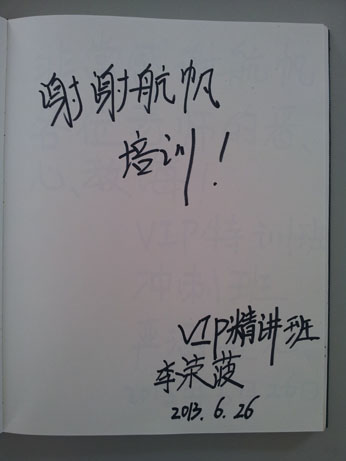 谢谢航帆
培训!
VIP精讲班
李荣菠
2013.6.26